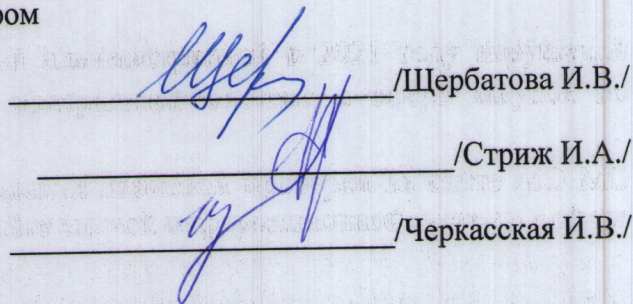 ром
/Щербатова И.В./
/Стриж И.А./
/Черкасская И.В./